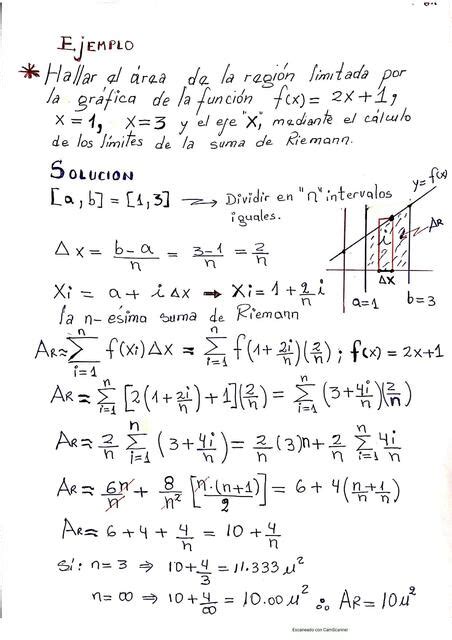 EJEMPLO
* Hallar el área de la región limitada por
la gráfica de la función f(x) = 2x+1,
x = 1, x = 3 y el eje "X", mediante el cálculo
de los límites de la suma de Riemann.
SOLUCION
[a, b] = [1, 3] → Dividir en "n" intervalos
iguales.
y = f(x)
AR
i
Δx
a=1
b=3
Δx = (b-a)/n = (3-1)/n = 2/n
Xi = a + i Δx → Xi = 1 + (2/n) i
la n-ésima suma de Riemann
AR ≈ Σ_{i=1}^{n} f(Xi) Δx = Σ_{i=1}^{n} f(1 + 2i/n)(2/n) ; f(x) = 2x+1
AR ≈ Σ_{i=1}^{n} [2(1 + 2i/n) + 1](2/n) = Σ_{i=1}^{n} (3 + 4i/n)(2/n)
AR ≈ 2/n Σ_{i=1}^{n} (3 + 4i/n) = 2/n (3)n + 2/n Σ_{i=1}^{n} 4i/n
AR ≈ 6n/n + 8/n² [n·(n+1)/2] = 6 + 4((n+1)/n)
AR ≈ 6 + 4 + 4/n = 10 + 4/n
Si: n = 3 ⇒ 10 + 4/3 = 11.333 u²
n = ∞ ⇒ 10 + 4/∞ = 10.00 u² ∴ AR = 10 u²
Escaneado con CamScanner